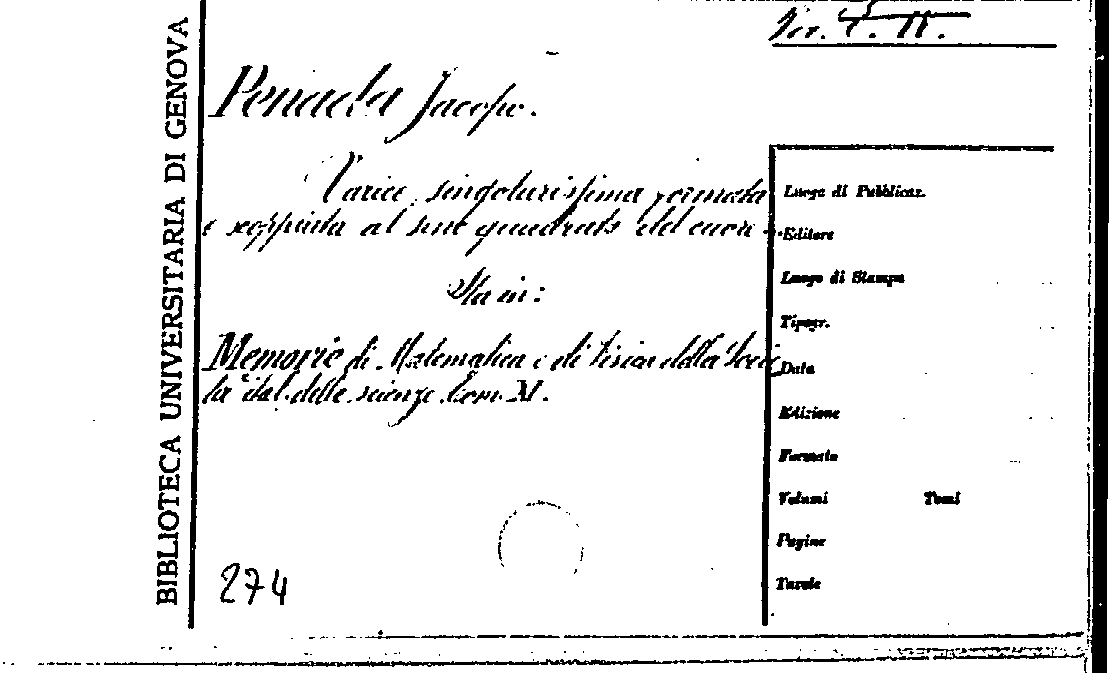 BIBLIOTECA UNIVERSITARIA DI GENOVA
Penada Jacopo.
Varice singolarissima formata
e scoppiata al seno quadrato del cuore
Sta in:
Memorie di Matematica e di Fisica della Socie
tà ital. delle scienze. Tom. XI.
Luogo di Pubblicaz.
Editore
Luogo di Stampa
Tipogr.
Data
Edizione
Formato
Volumi Tomi
Pagine
Tavole
274